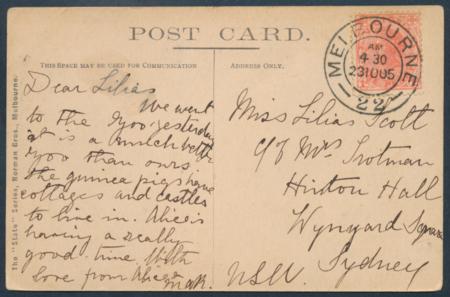 POST CARD.
THIS SPACE MAY BE USED FOR COMMUNICATION
ADDRESS ONLY.
The "State" Series, Norman Bros., Melbourne.
Dear Lilias
We went
to the Zoo yesterday
it is a much better
zoo than ours
the guinea pigs have
cottages and castles
to live in. Alice is
having a really
good time. With
love from Alice &
MELBOURNE
AM
4 30
23 10 05
22
Miss Lilias Scott
c/o Mrs Trotman
Hinton Hall
Wynyard Square
Sydney
NSW.